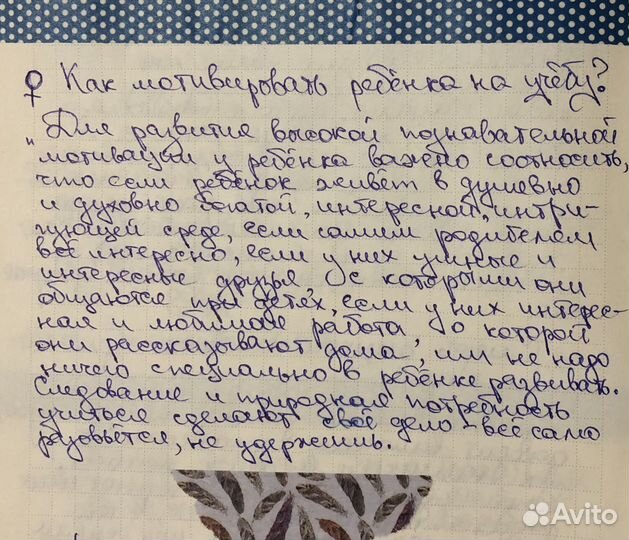 ♀ Как мотивировать ребёнка на учёбу?
„Для развития высокой познавательной
мотивации у ребёнка важно соотносить,
что если ребёнок живёт в душевно
и духовно богатой, интересной, интри-
гующей среде, если самим родителям
всё интересно, если у них умные и
интересные друзья, с которыми они
общаются при детях, если у них интерес-
ная и любимая работа, о которой
они рассказывают дома, им не надо
ничего специально в ребёнке развивать.
Следование и природная потребность
учиться сделают своё дело – всё само
разовьётся, не удержишь.
Avito